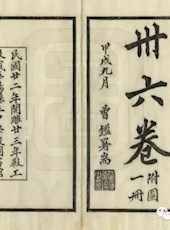 卅六卷
附圖一冊
甲戌九月
曹鑑署耑
民國廿二年開雕廿三年竣工